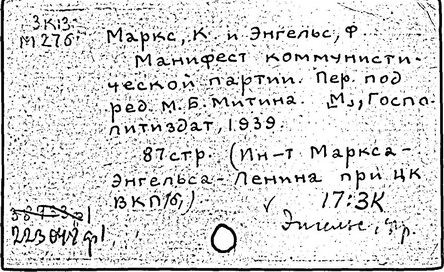 3К13
М276
Маркс, К. и Энгельс, Ф.
Манифест коммунисти-
ческой партии. Пер. под
ред. М.Б. Митина. М., Госпо-
литиздат, 1939.
87 стр. (Ин-т Маркса-
Энгельса-Ленина при ЦК
ВКП(б))
17:3К
Энгельс, Фр.